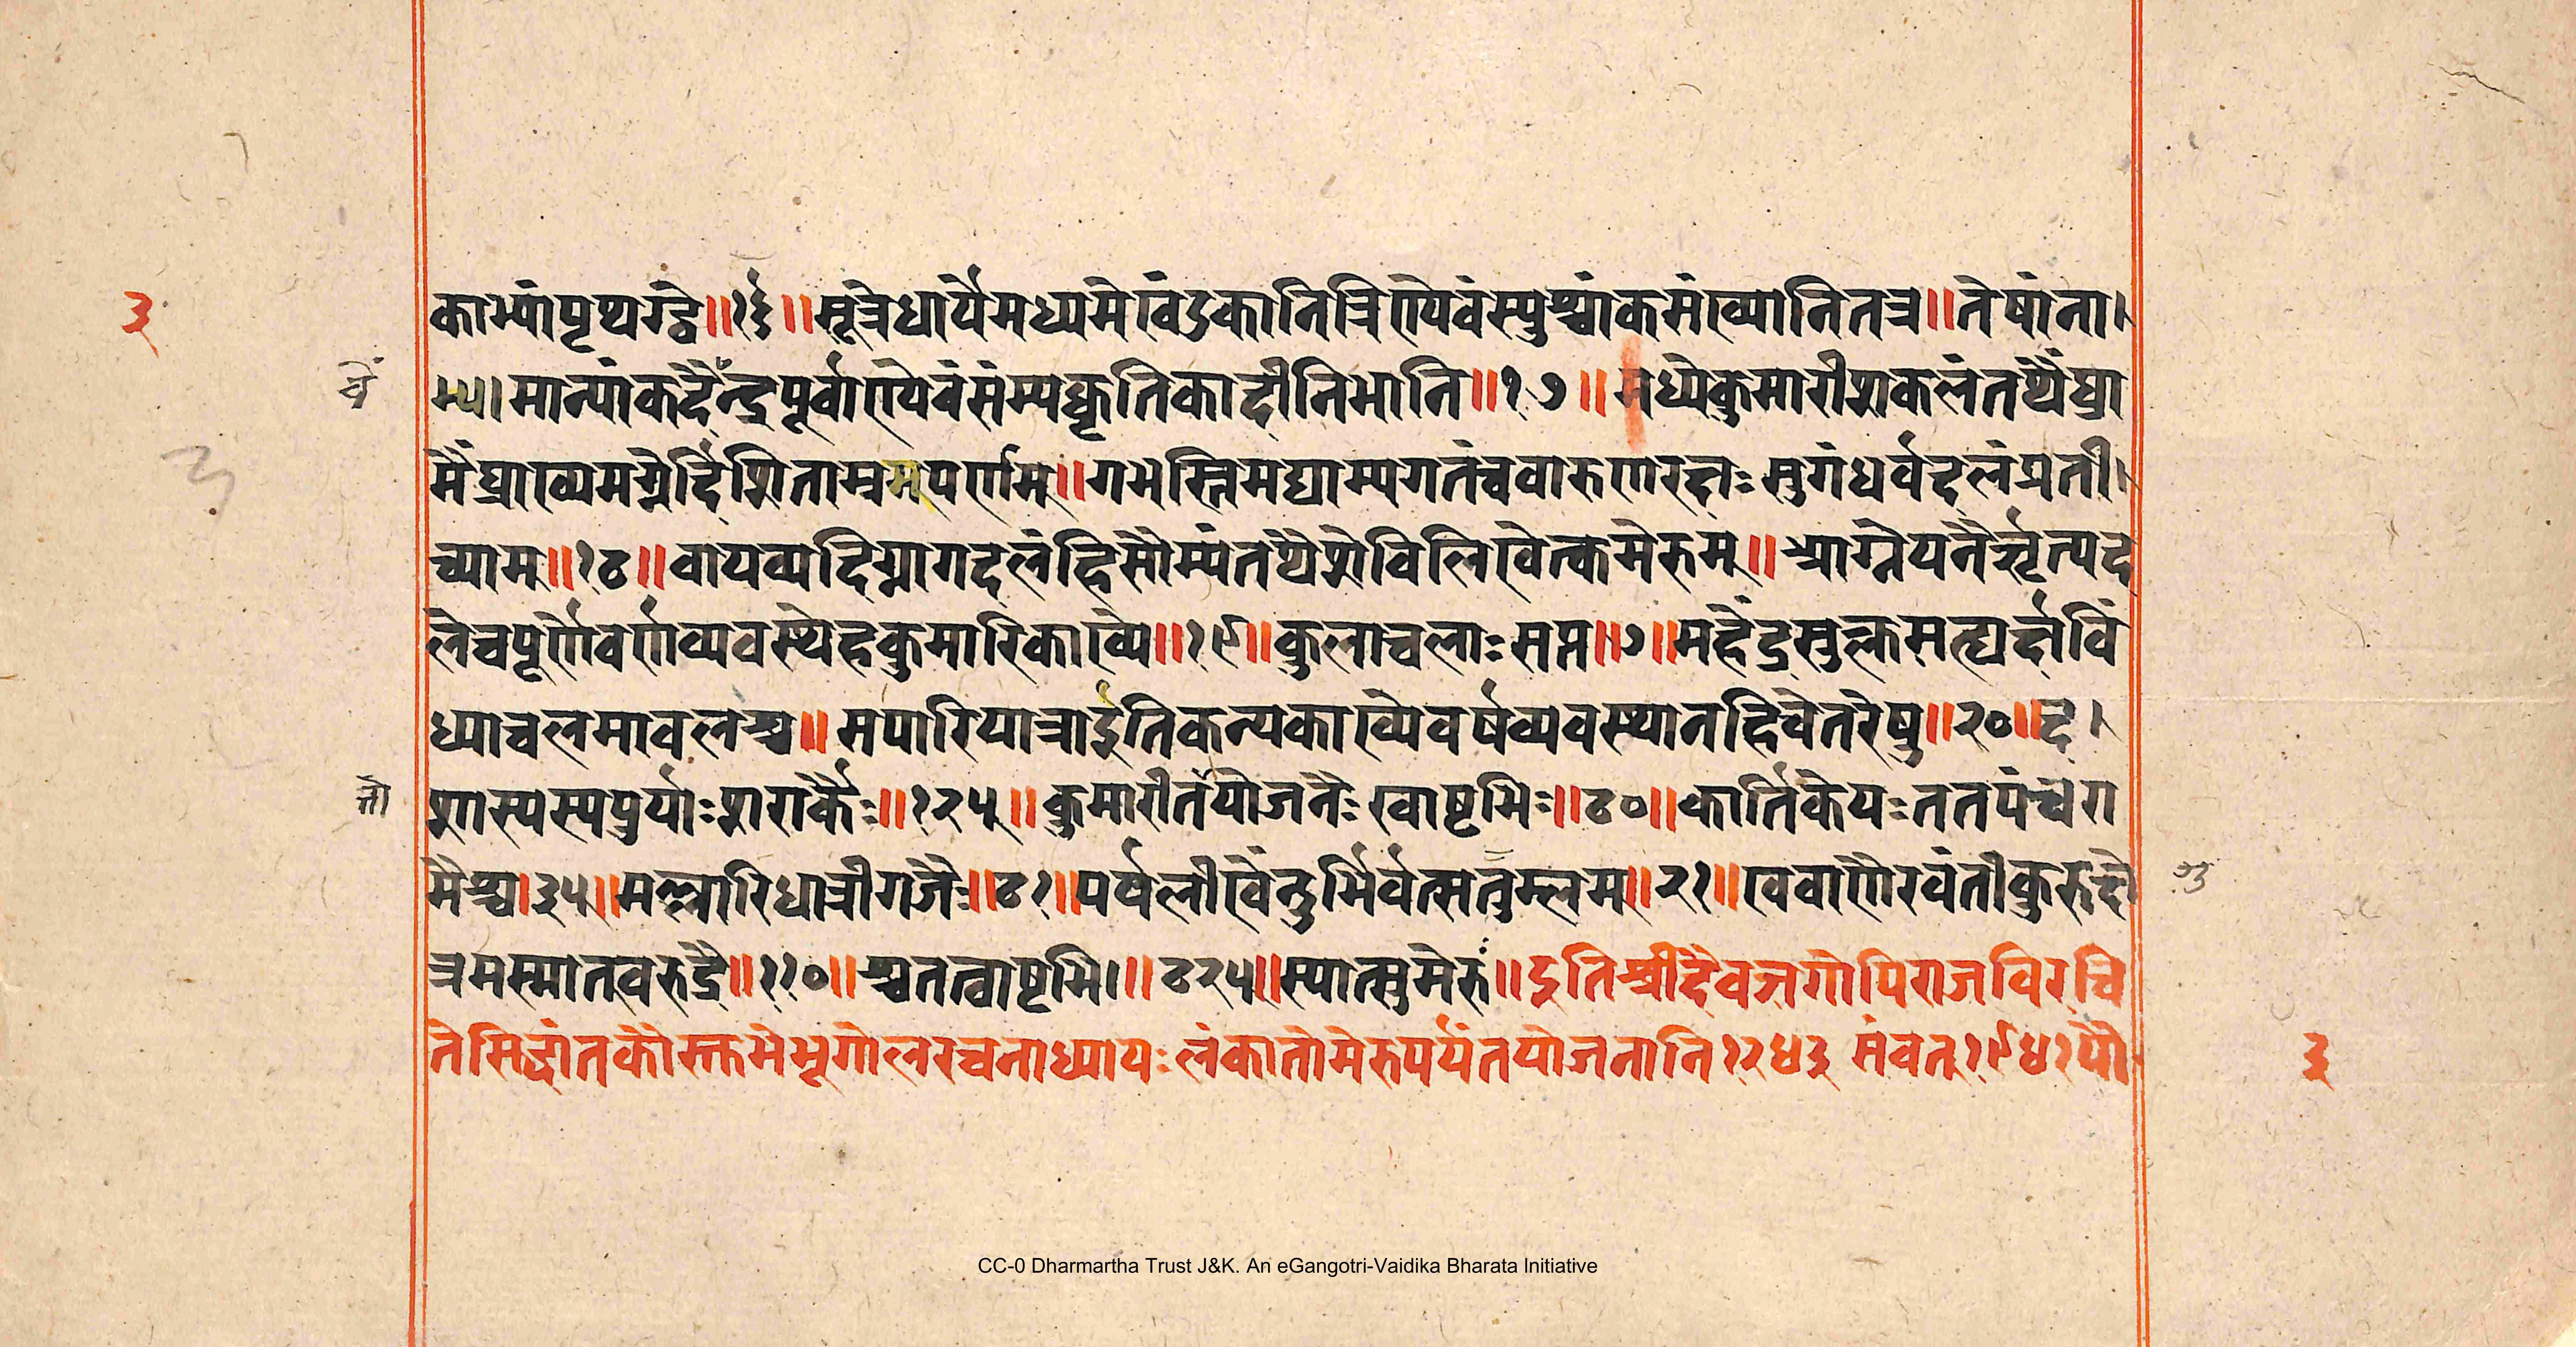 ३
काभ्यांपृथग्द्वे॥१६॥सूत्रेधार्यैमध्यमेखंडकानित्रिण्येवंस्युश्चांकसंख्यानितत्र॥तेषांना।
मान्यांकदैन्द्रपूर्वाण्येवंसंम्यक्कृतिकादीनिभानि॥१७॥मध्येकुमारीशकलंतथैंघ्रा
चें
मैंघ्राख्यमग्नेर्दिशिताम्रपर्णम्॥गभस्तिमद्याम्यगतंचवारुणरक्षः सुगंधर्वदलंप्रती।
च्याम्॥१८॥वायव्यदिग्नागदलंहिसौम्यंतथैशेविलिखेत्कमेरुम्॥आग्नेयनैरृत्यद
लेचपूर्णेवर्णव्यवस्थेहकुमारिकाख्ये॥१९॥कुलाचलाः सप्त॥७॥महेंद्रसुक्तमत्द्यर्क्षविं
ध्याचलमावलश्च॥मपारियात्राइतिकन्यकाख्येवर्षव्यवस्थानहिचेतरेषु॥२०॥द।
तो
शास्यस्यपुर्याः शराकैः॥१२५॥कुमारीर्तयोजनैः खाष्टभिः॥८०॥कार्तिकेयः ततपंचरा
मैश्च।३५॥मल्लारिधात्रीगजैः॥८१॥पर्षलीखेंनुर्भिर्वत्सतुम्लम्॥२१॥खबाणैरवंतीकुरुक्षे
त्रमस्मात्खरुद्रै॥११०॥श्चतत्वाष्टभि।॥८२५॥स्यात्सुमेरुः॥इतिश्रीदैवज्ञगोपिराजविरचि
तेसिद्धांतकौस्तुभेभूगोलरचनाध्यायः लंकातोमेरुपर्यंतयोजनानि१२५३ संवत्१९५१पौ
३
CC-0 Dharmartha Trust J&K. An eGangotri-Vaidika Bharata Initiative